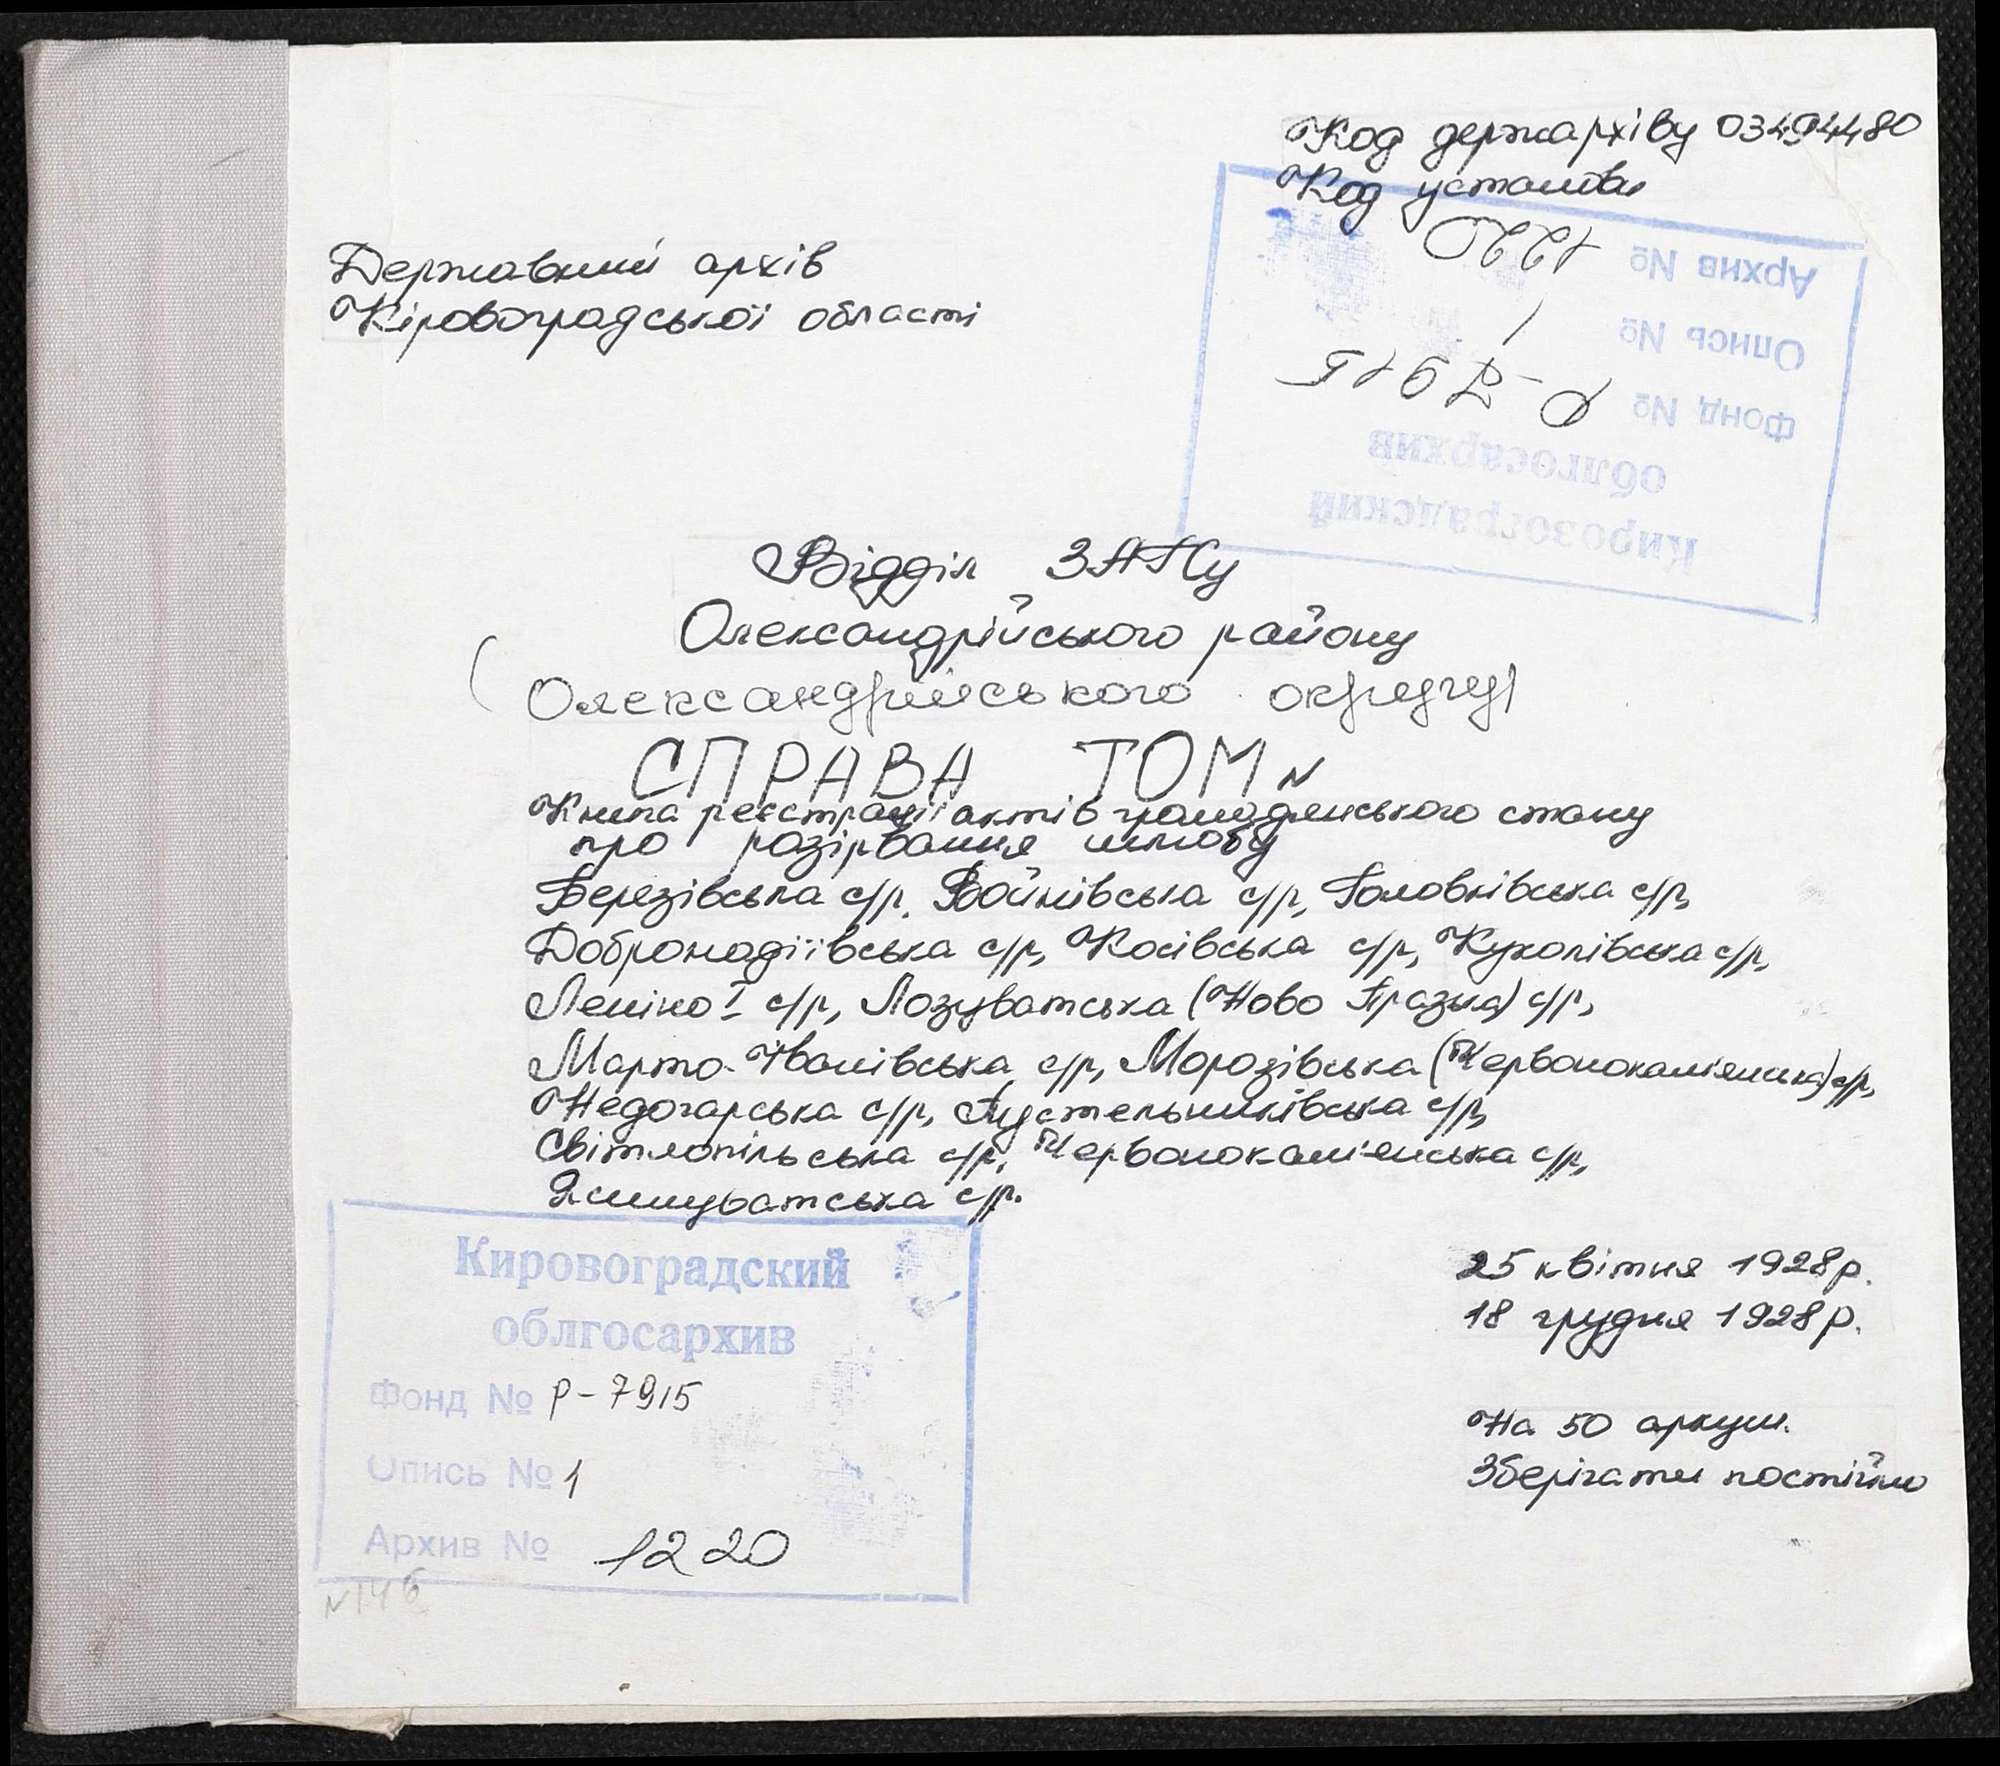 Код держархіву 03494480
Код установи
Державний архів
Кіровоградської області
Архив № 1220
Опись № 1
Фонд № Р-7915
облгосархив
Кировоградский
Відділ ЗАГСу
Олександрійського району
(Олександрійського округу)
СПРАВА ТОМ N
Книга реєстрації актів громадянського стану
про розірвання шлюбу
Березівська с/р, Войнівська с/р, Головківська с/р,
Добронадіївська с/р, Косівська с/р, Куколівська с/р,
Леніно I с/р, Лозуватська (Ново Празька) с/р,
Марто-Іванівська с/р, Морозівська (Червонокам'янська) с/р,
Недогарська с/р, Пустельниківська с/р,
Світлопільська с/р, Червонокам'янська с/р,
Ясинуватська с/р.
Кировоградский
облгосархив
Фонд № Р-7915
Опись № 1
Архив № 1220
N 146
25 квітня 1928р.
18 грудня 1928р.
На 50 аркуш.
Зберігати постійно